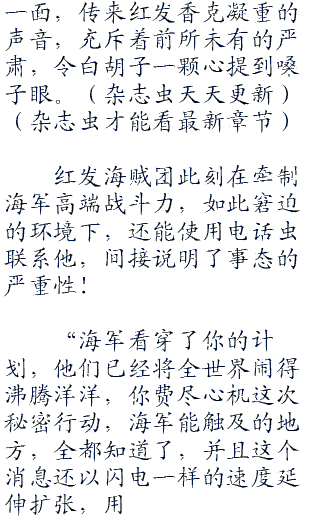 一面，传来红发香克凝重的
声音，充斥着前所未有的严
肃，令白胡子一颗心提到嗓
子眼。（杂志虫天天更新）
（杂志虫才能看最新章节）
红发海贼团此刻在牵制
海军高端战斗力，如此窘迫
的环境下，还能使用电话虫
联系他，间接说明了事态的
严重性！
“海军看穿了你的计
划，他们已经将全世界闹得
沸腾洋洋，你费尽心机这次
秘密行动，海军能触及的地
方，全都知道了，并且这个
消息还以闪电一样的速度延
伸扩张，用